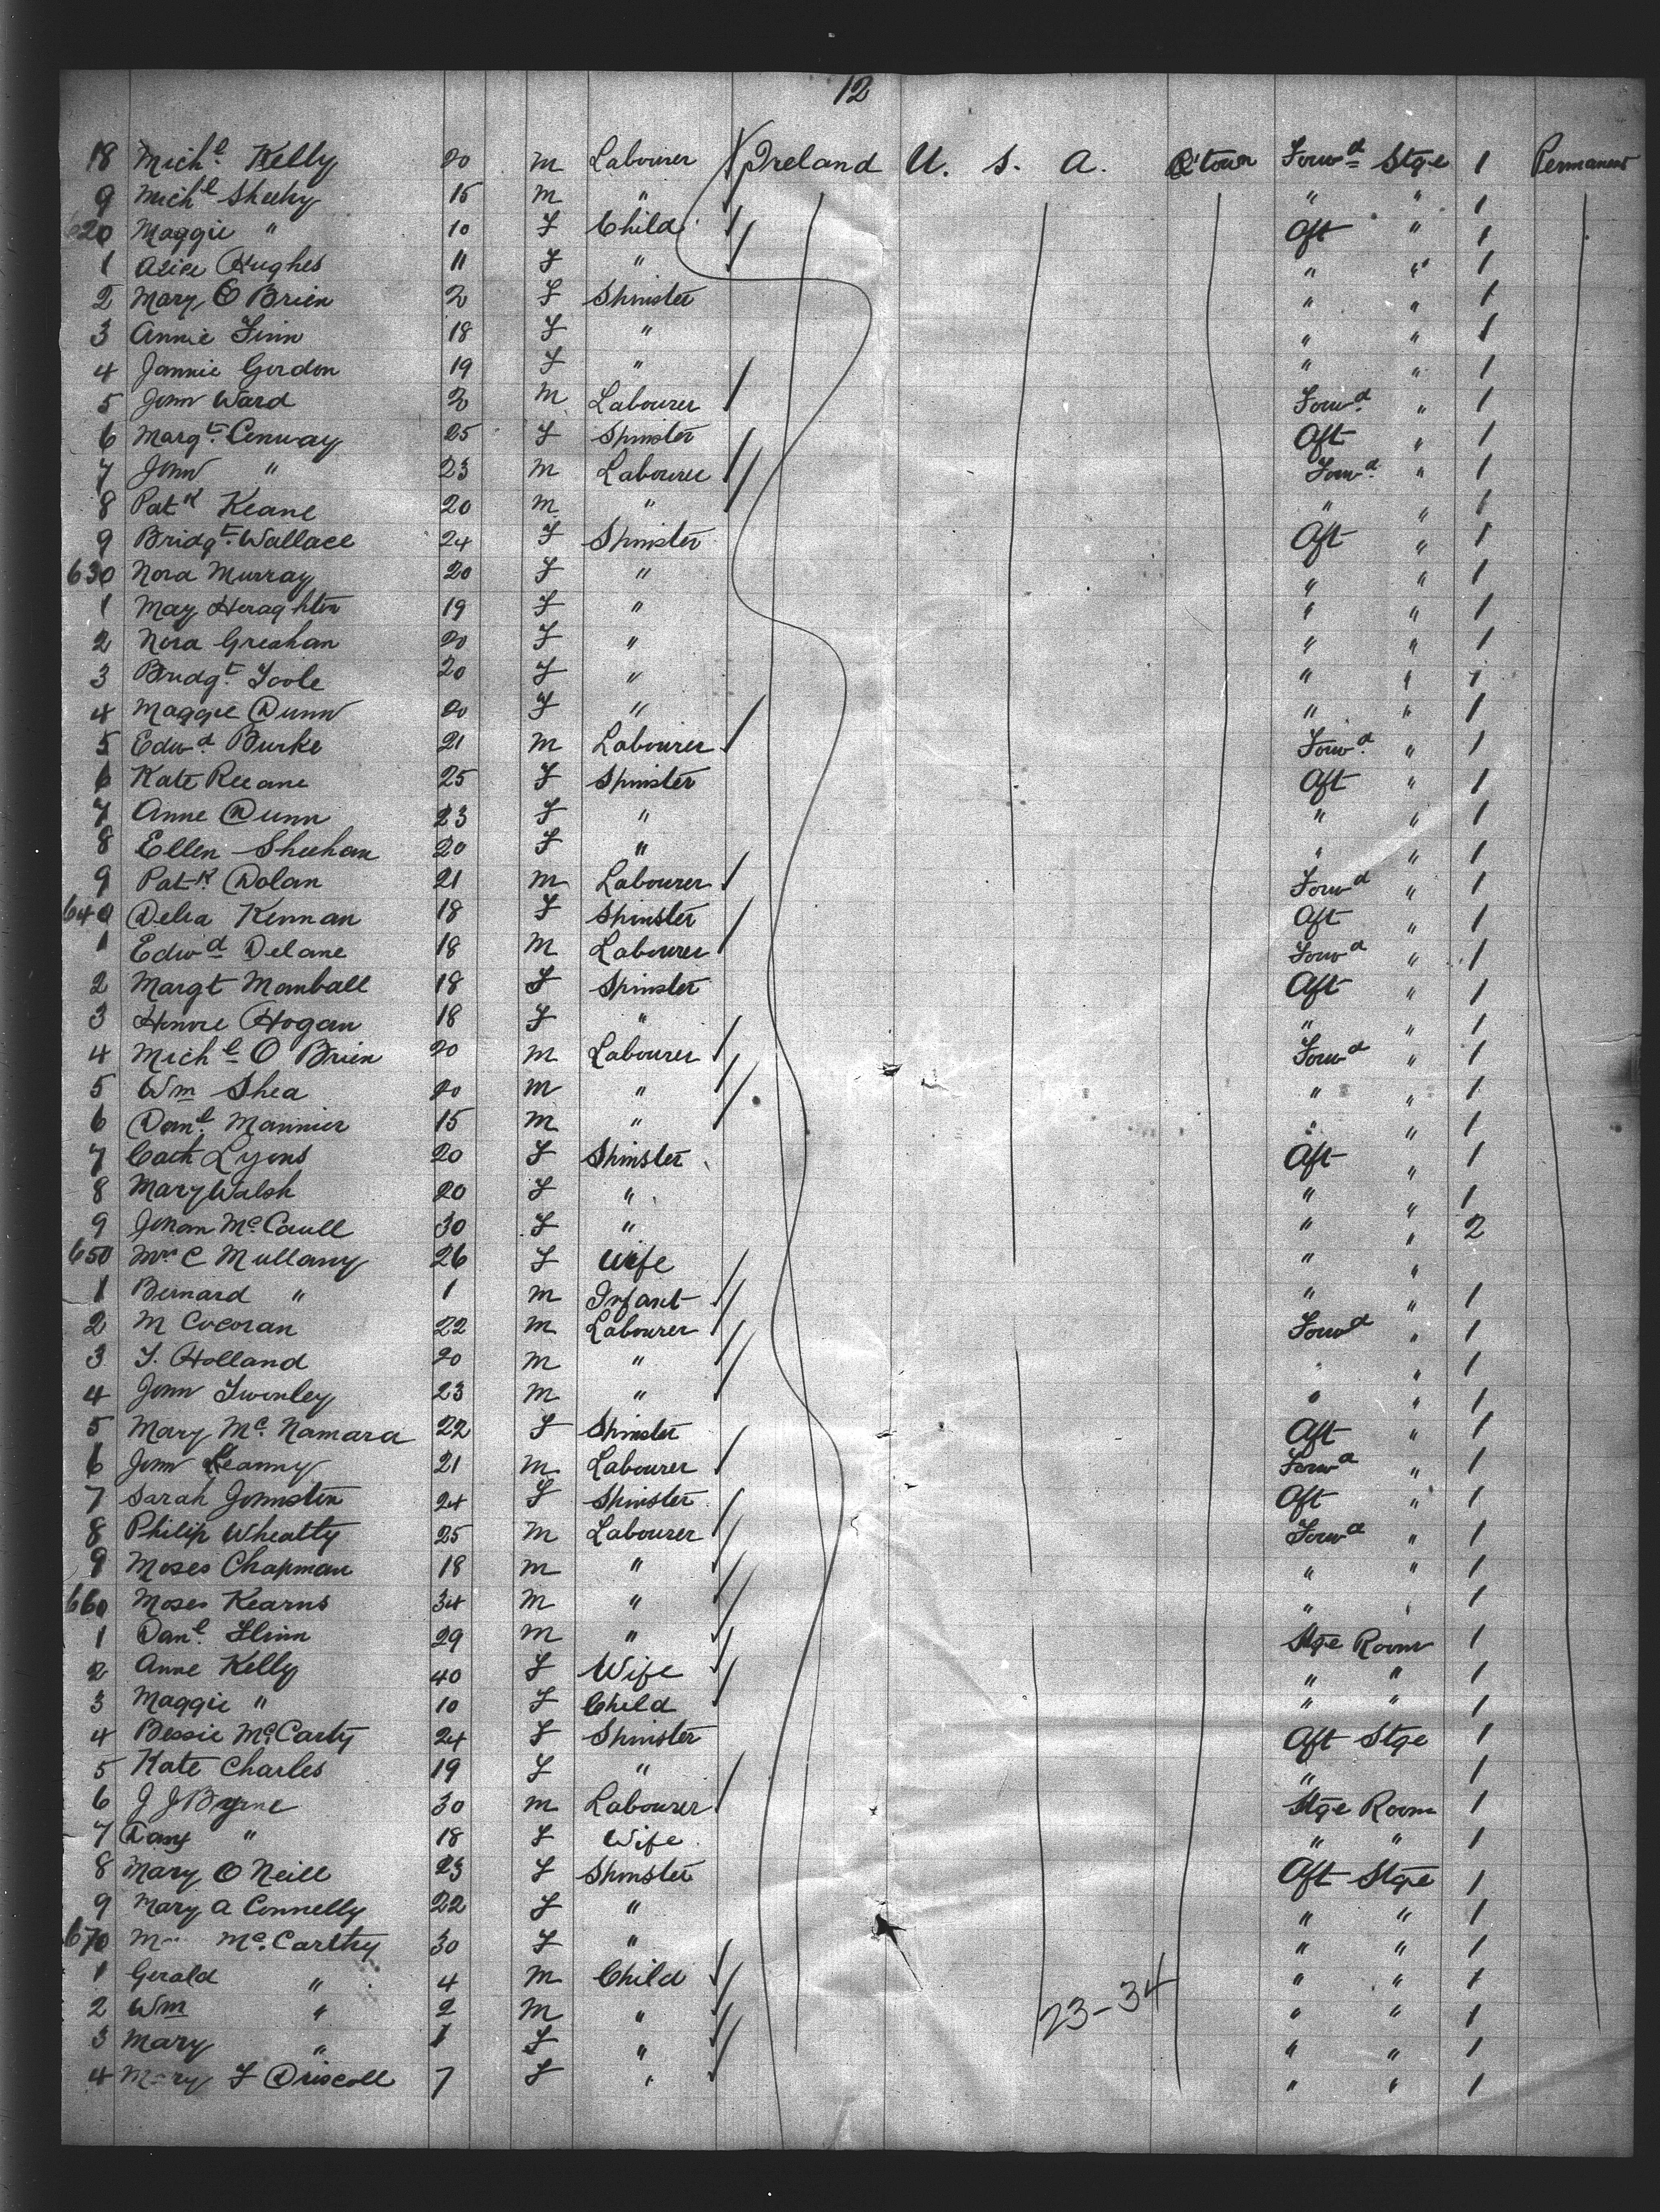 12
18 Mich.l Kelly 20 m Labourer Ireland U. S. A. Q'town Forwd Stge 1 Permanent
9 Mich.l Sheehy 15 m " " " 1
620 Maggie " 10 F Child Aft " 1
1 Alice Hughes 11 F " " " 1
2 Mary O Brien 2 F Spinster " " 1
3 Annie Finn 18 F " " " 1
4 Jannie Gordon 19 F " " " 1
5 John Ward 2 m Labourer Forwd " 1
6 Margt. Conway 25 F Spinster Aft " 1
7 John " 23 m Labourer Forwd " 1
8 Patk Keane 20 m " " " 1
9 Bridgt. Wallace 24 F Spinster Aft " 1
630 Nora Murray 20 F " " " 1
1 May Heraghten 19 F " " " 1
2 Nora Greahan 20 F " " " 1
3 Bridgt. Toole 20 F " " " 1
4 Maggie Dunn 20 F " " " 1
5 Edwd. Burke 21 m Labourer Forwd " 1
6 Kate Reeane 25 F Spinster Aft " 1
7 Anne Dunn 23 F " " " 1
8 Ellen Sheehan 20 F " " " 1
9 Patk. Dolan 21 m Labourer Forwd " 1
640 Delia Kennan 18 F Spinster Aft " 1
1 Edwd Delane 18 m Labourer Forwd " 1
2 Margt Momball 18 F Spinster Aft " 1
3 Honore Hogan 18 F " " " 1
4 Michl O Brien 20 m Labourer Forwd " 1
5 Wm Shea 20 m " " " 1
6 Danl. Mannier 15 m " " " 1
7 Cath Lyons 20 F Spinster Aft " 1
8 Mary Walsh 20 F " " " 1
9 Johan McCaull 30 F " " " 2
650 Mrs C Mullany 26 F Wife " "
1 Bernard " 1 m Infant " " 1
2 M Cocoran 22 m Labourer Forwd " 1
3 T. Holland 20 m " " " 1
4 John Twonley 23 m " " " 1
5 Mary Mc. Namara 22 F Spinster Aft " 1
6 John Keanny 21 m Labourer Forwd " 1
7 Sarah Johnston 24 F Spinster Aft " 1
8 Philip Wheatty 25 m Labourer Forwd " 1
9 Moses Chapman 18 m " " " 1
660 Moses Kearns 34 m " " " 1
1 Danl. Flinn 29 m " Stge Room 1
2 Anne Kelly 40 F Wife " " 1
3 Maggie " 10 F Child " " 1
4 Bessie McCarty 24 F Spinster Aft Stge 1
5 Kate Charles 19 F " " 1
6 J J Byrne 30 m Labourer Stge Room 1
7 " 18 F Wife " " 1
8 Mary O Neill 23 F Spinster Aft Stge 1
9 Mary A Connelly 22 F " " " 1
670 Mc.Carthy 30 F " " " 1
1 Gerald " 4 m Child " " 1
2 Wm " 2 m " " " 1
3 Mary " 1 F " " " 1
4 Mary F Driscoll 7 F " " " 1
23-34